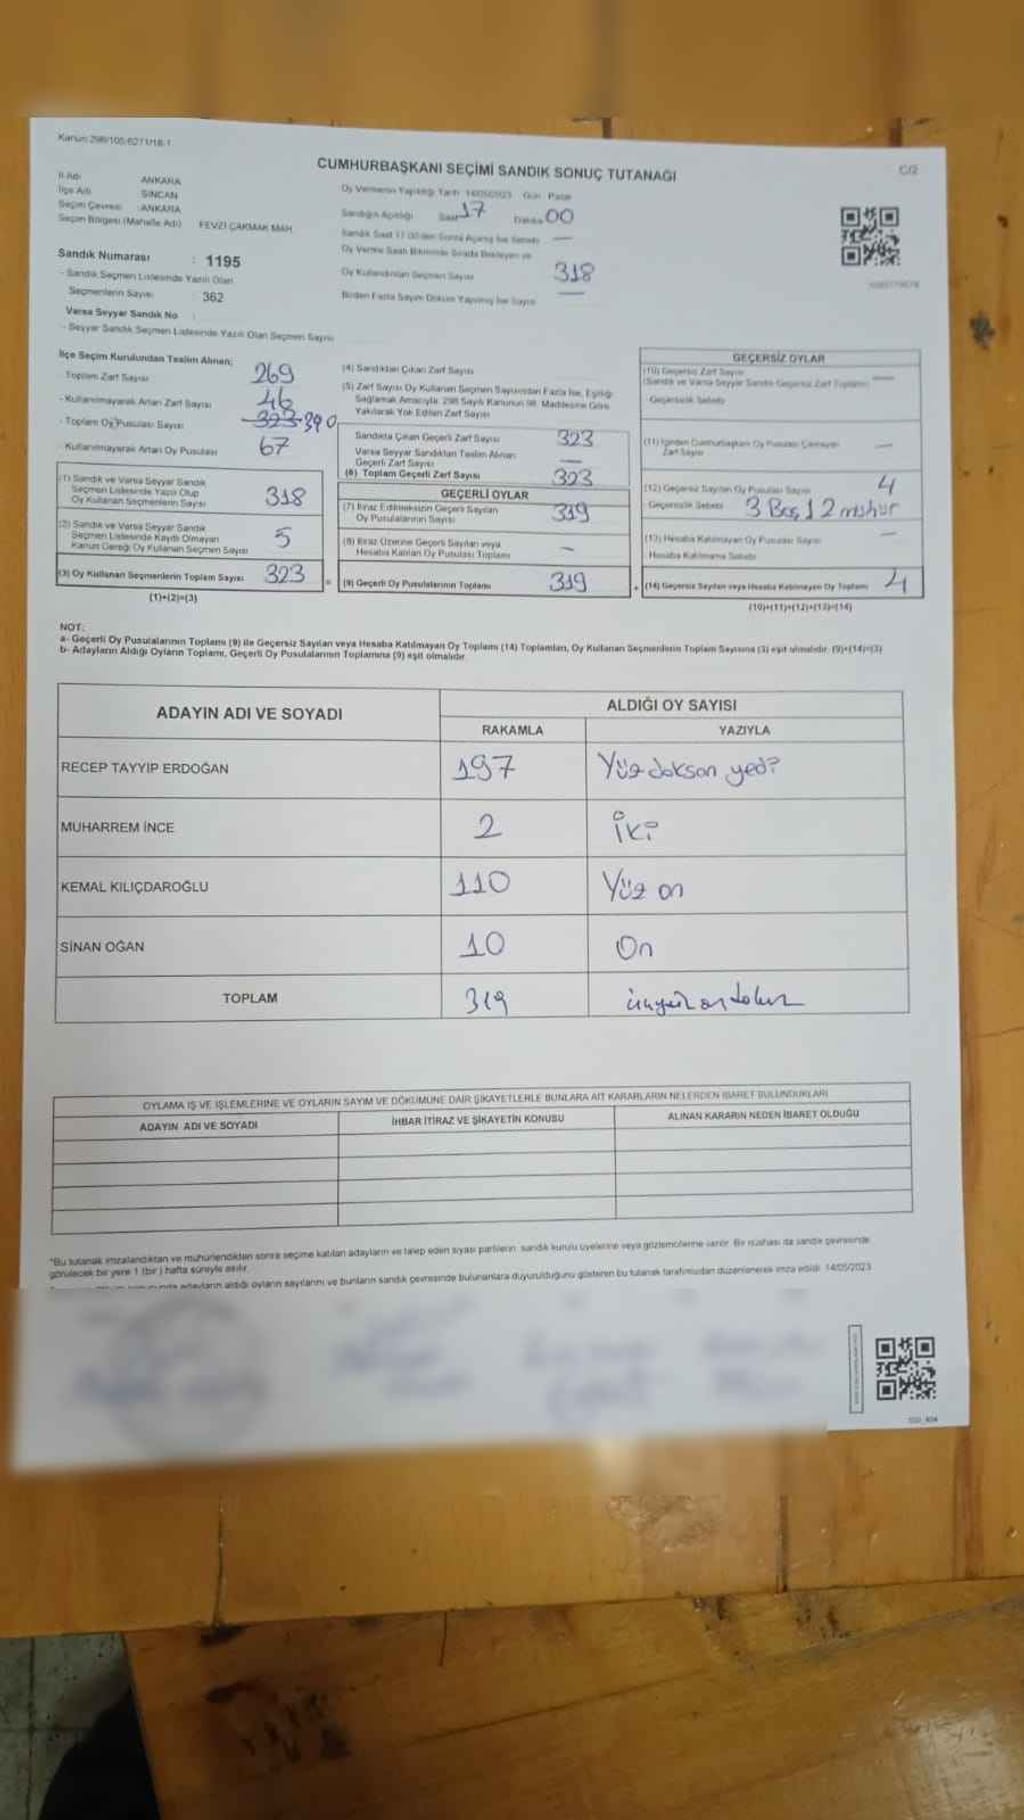 Kanun: 298/105-6271/18-1
CUMHURBAŞKANI SEÇİMİ SANDIK SONUÇ TUTANAĞI
C/2
İl Adı ANKARA
İlçe Adı SİNCAN
Seçim Çevresi ANKARA
Seçim Bölgesi (Mahalle Adı) FEVZİ ÇAKMAK MAH
Sandık Numarası : 1195
- Sandık Seçmen Listesinde Yazılı Olan
Seçmenlerin Sayısı 362
Varsa Seyyar Sandık No
- Seyyar Sandık Seçmen Listesinde Yazılı Olan Seçmen Sayısı
Oy Vermenin Yapıldığı Tarih 14/05/2023 Gün Pazar
Sandığın Açıldığı Saat 17 Dakika 00
Oy Kullandırılan Seçmen Sayısı 318
Birden Fazla Sayım Döküm Yapılmış İse Sayısı —
İlçe Seçim Kurulundan Teslim Alınan;
Toplam Zarf Sayısı 269
- Kullanılmayarak Artan Zarf Sayısı 46
- Toplam Oy Pusulası Sayısı 323 390
- Kullanılmayarak Artan Oy Pusulası 67
(1) Sandık ve Varsa Seyyar Sandık
Seçmen Listesinde Yazılı Olup
Oy Kullanan Seçmenlerin Sayısı 318
(2) Sandık ve Varsa Seyyar Sandık
Seçmen Listesinde Kayıtlı Olmayan
Kanun Gereği Oy Kullanan Seçmen Sayısı 5
(3) Oy Kullanan Seçmenlerin Toplam Sayısı 323
(1)+(2)=(3)
(4) Sandıktan Çıkan Zarf Sayısı
(5) Zarf Sayısı Oy Kullanan Seçmen Sayısından Fazla İse, Eşitliği
Sağlamak Amacıyla 298 Sayılı Kanunun 98. Maddesine Göre
Yakılarak Yok Edilen Zarf Sayısı
Sandıkta Çıkan Geçerli Zarf Sayısı 323
Varsa Seyyar Sandıktan Teslim Alınan
Geçerli Zarf Sayısı —
(6) Toplam Geçerli Zarf Sayısı 323
GEÇERLİ OYLAR
(7) İtiraz Edilmeksizin Geçerli Sayılan
Oy Pusulalarının Sayısı 319
(8) İtiraz Üzerine Geçerli Sayılan veya
Hesaba Katılan Oy Pusulası Toplamı —
(9) Geçerli Oy Pusulalarının Toplamı 319
GEÇERSİZ OYLAR
(10) Geçersiz Zarf Sayısı —
Geçersizlik Sebebi
(11) İçinden Cumhurbaşkanı Oy Pusulası Çıkmayan
Zarf Sayısı —
(12) Geçersiz Sayılan Oy Pusulası Sayısı 4
Geçersizlik Sebebi 3 Boş 1 2 mühür
(13) Hesaba Katılmayan Oy Pusulası Sayısı —
Hesaba Katılmama Sebebi
(14) Geçersiz Sayılan veya Hesaba Katılmayan Oy Toplamı 4
(10)+(11)+(12)+(13)=(14)
NOT:
a- Geçerli Oy Pusulalarının Toplamı (9) ile Geçersiz Sayılan veya Hesaba Katılmayan Oy Toplamı (14) Toplamları, Oy Kullanan Seçmenlerin Toplam Sayısına (3) eşit olmalıdır. (9)+(14)=(3)
b- Adayların Aldığı Oyların Toplamı, Geçerli Oy Pusulalarının Toplamına (9) eşit olmalıdır.
ADAYIN ADI VE SOYADI
ALDIĞI OY SAYISI
RAKAMLA YAZIYLA
RECEP TAYYIP ERDOĞAN 197 Yüz doksan yedi
MUHARREM İNCE 2 İki
KEMAL KILIÇDAROĞLU 110 Yüz on
SİNAN OĞAN 10 On
TOPLAM 319 üçyüz on dokuz
OYLAMA İŞ VE İŞLEMLERİNE VE OYLARIN SAYIM VE DÖKÜMÜNE DAİR ŞİKAYETLERLE BUNLARA AİT KARARLARIN NELERDEN İBARET BULUNDUKLARI
ADAYIN ADI VE SOYADI İHBAR İTİRAZ VE ŞİKAYETİN KONUSU ALINAN KARARIN NEDEN İBARET OLDUĞU
*Bu tutanak imzalandıktan ve mühürlendikten sonra seçime katılan adayların ve talep eden siyasi partilerin sandık kurulu üyelerine veya gözlemcilerine verilir. Bir nüshası da sandık çevresinde
görülecek bir yere 1 (bir) hafta süreyle asılır.
adayların aldığı oyların sayılarını ve bunların sandık çevresinde bulunanlara duyurulduğunu gösteren bu tutanak tarafımızdan düzenlenerek imza edildi. 14/05/2023